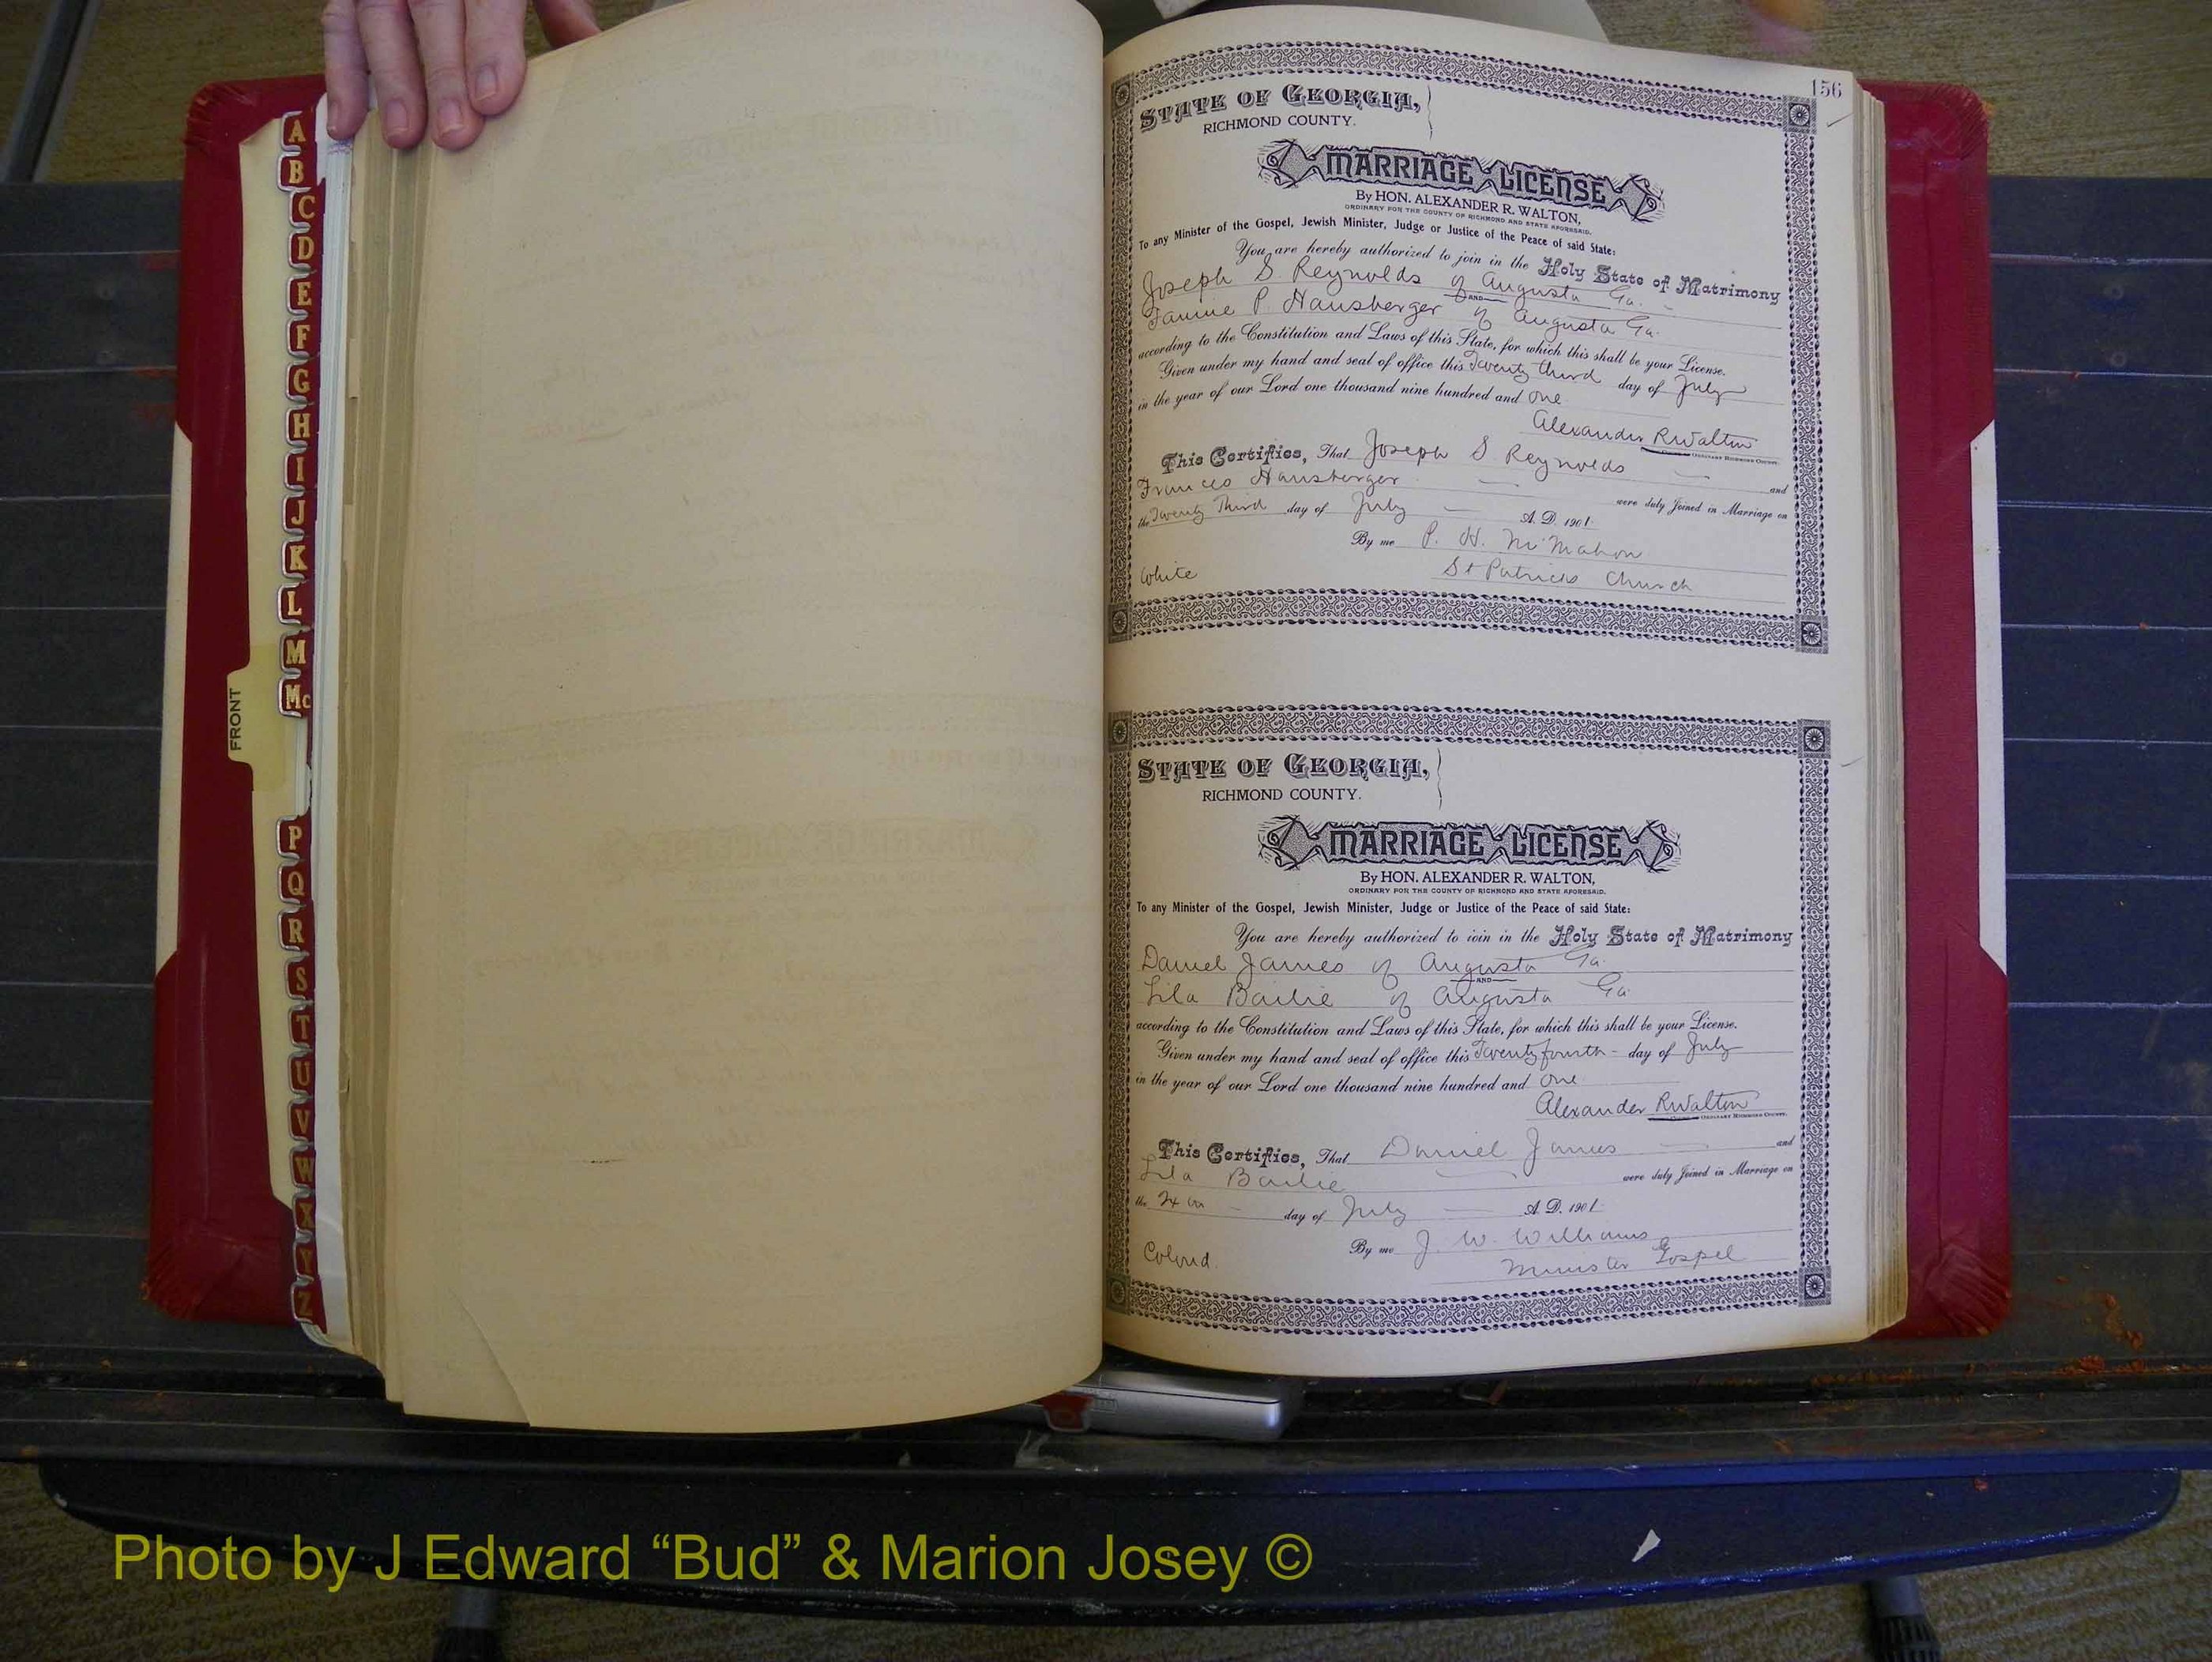 A
B
C
D
E
F
G
H
I
J
K
L
M
Mc
P
Q
R
S
T
U
V
W
X
Y
Z
FRONT
156
STATE OF GEORGIA,
RICHMOND COUNTY.
MARRIAGE LICENSE
By HON. ALEXANDER R. WALTON,
ORDINARY FOR THE COUNTY OF RICHMOND AND STATE AFORESAID.
To any Minister of the Gospel, Jewish Minister, Judge or Justice of the Peace of said State:
You are hereby authorized to join in the Holy State of Matrimony
Joseph S. Reynolds of Augusta Ga.
AND
Fannie P. Hansberger of Augusta Ga.
according to the Constitution and Laws of this State, for which this shall be your License.
Given under my hand and seal of office this Twenty third day of July
in the year of our Lord one thousand nine hundred and one
Alexander R Walton
ORDINARY RICHMOND COUNTY.
This Certifies, That Joseph S Reynolds and
Frances Hansberger were duly Joined in Marriage on
the Twenty Third day of July A. D. 1901.
By me P. H. McMahon
White St Patricks Church
STATE OF GEORGIA,
RICHMOND COUNTY.
MARRIAGE LICENSE
By HON. ALEXANDER R. WALTON,
ORDINARY FOR THE COUNTY OF RICHMOND AND STATE AFORESAID.
To any Minister of the Gospel, Jewish Minister, Judge or Justice of the Peace of said State:
You are hereby authorized to join in the Holy State of Matrimony
Daniel James of Augusta Ga.
AND
Lila Bailie of Augusta Ga
according to the Constitution and Laws of this State, for which this shall be your License.
Given under my hand and seal of office this Twenty fourth - day of July
in the year of our Lord one thousand nine hundred and one
Alexander R Walton
ORDINARY RICHMOND COUNTY.
This Certifies, That Daniel James and
Lila Bailie were duly Joined in Marriage on
the day of July A. D. 1901.
By me J. W. Williams
Colored. Minister Gospel
Photo by J Edward “Bud” & Marion Josey ©